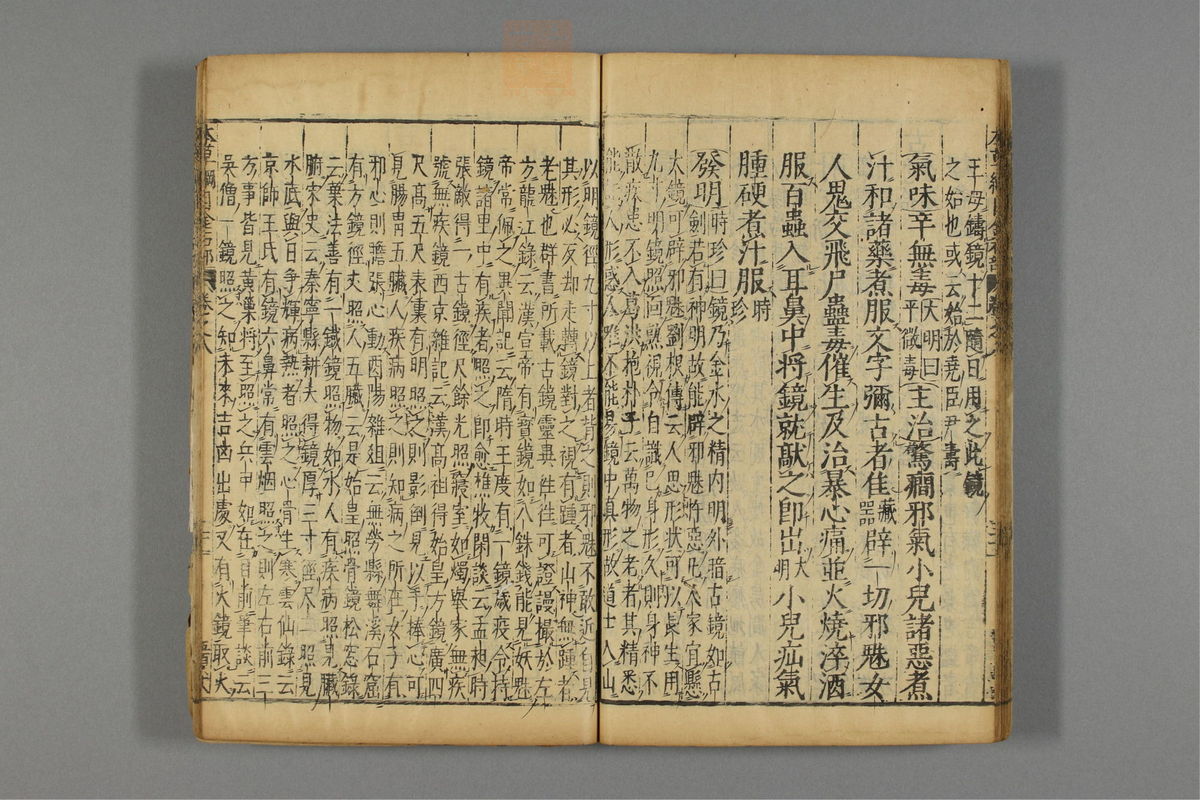 王母鑄鏡十二隨日用之此鏡
之始也或云始於堯臣尹壽
氣味辛無毒大明曰平微毒主治驚癇邪氣小兒諸惡煮
汁和諸藥煮服文字彌古者佳藏器辟一切邪魅女
人鬼交飛尸蠱毒催生及治暴心痛並火燒淬酒
服百蟲入耳鼻中將鏡就敲之卽出大明小兒疝氣
腫硬煮汁服時珍
發明時珍曰鏡乃金水之精內明外暗古鏡如古
劍若有神明故能辟邪魅忤惡凡人家宜懸
大鏡可辟邪魅劉根傳云人思形狀可以長生用
九寸明鏡照面熟視令自識己身形久則身神不
散疾患不入葛洪抱朴子云萬物之老者其精悉
能 人形惑人惟不能易鏡中真形故道士入山
以明鏡徑九寸以上者背之則邪魅不敢近自見
其形必反却走轉鏡對之視有踵者山神無踵者
老魅也群書所載古鏡靈異往往可證謾撮於左
方龍江錄云漢宣帝有寶鏡如八銖錢能見妖魅
帝常佩之異聞記云隋時王度有一鏡歲疫令持
鏡詣里中有疾者照之卽愈樵牧閑談云孟昶時
張敵得一古鏡徑尺餘光照寢室如燭舉家無疾
號無疾鏡西京雜記云漢高祖得始皇方鏡廣四
尺高五尺表裏有明照之則影倒見以手捧心可
見腸胃五臟人疾病照之則知病之所在女子有
邪心則膽張心動酉陽雜俎云無勞縣舞溪石窟
有方鏡徑丈照人五臟云是始皇照骨鏡松窓錄
云葉法善有一鐵鏡照物如水人有疾病照見臟
腑宋史云秦寧縣耕夫得鏡厚三寸徑尺二照見
水底與日爭輝病熱者照之心骨生寒雲仙錄云
京師王氏有鏡六鼻常有雲烟照之則左右前三
方事皆見黃巢將至照之兵甲如在目前筆談云
吳僧一鏡照之知未來吉凶出處又有火鏡取火
本草綱目金石部 卷之八